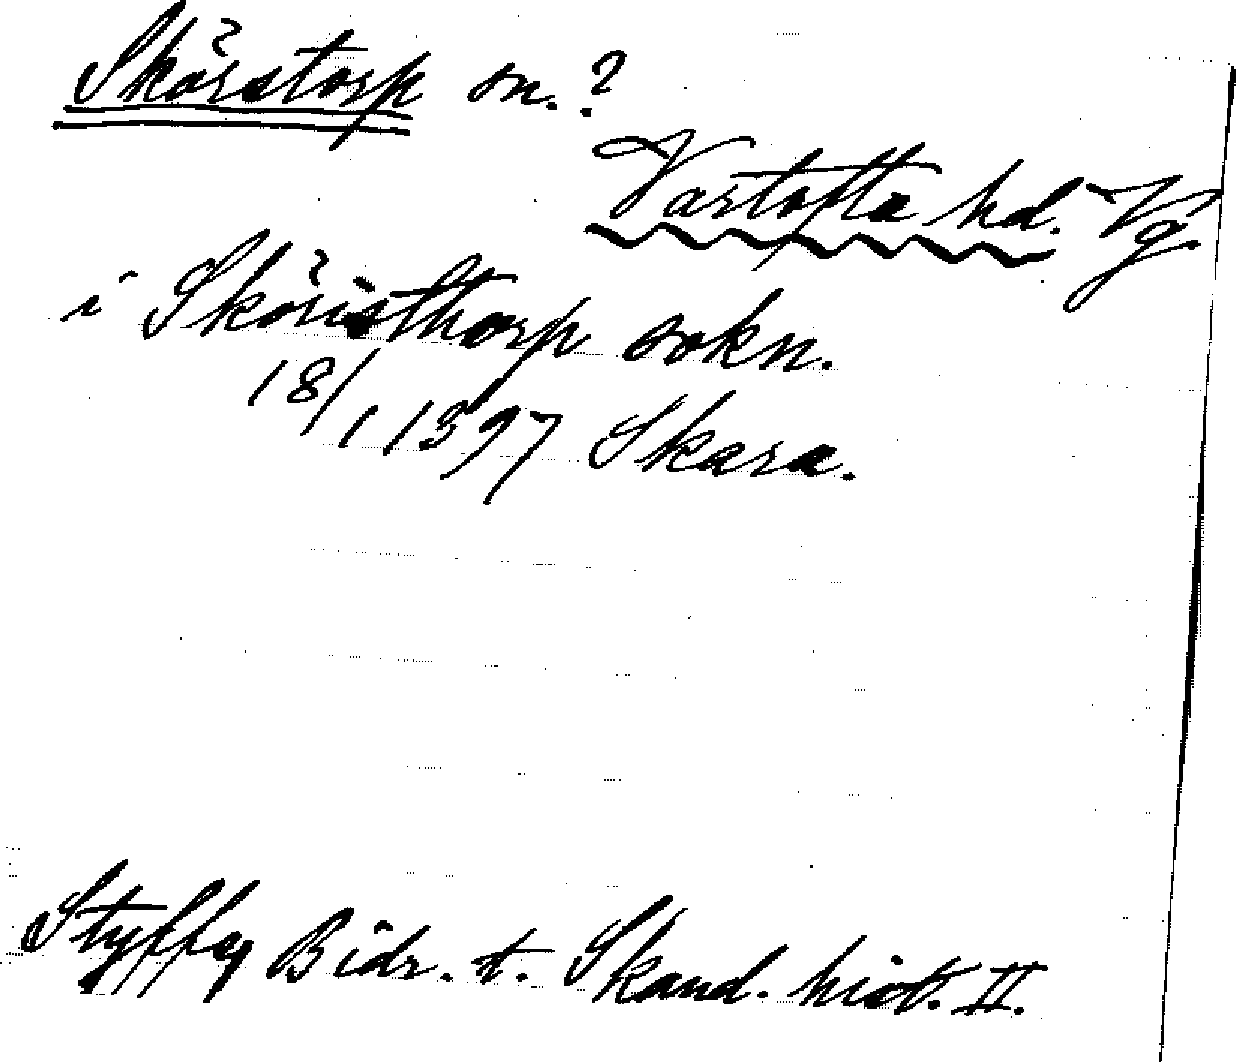 Skörstorp sn. ?
Vartofta hd. Vg
i Sköristhorp sokn.
18/1 1397 Skara.
Styffe, Bidr. t. Skand. hist. II.